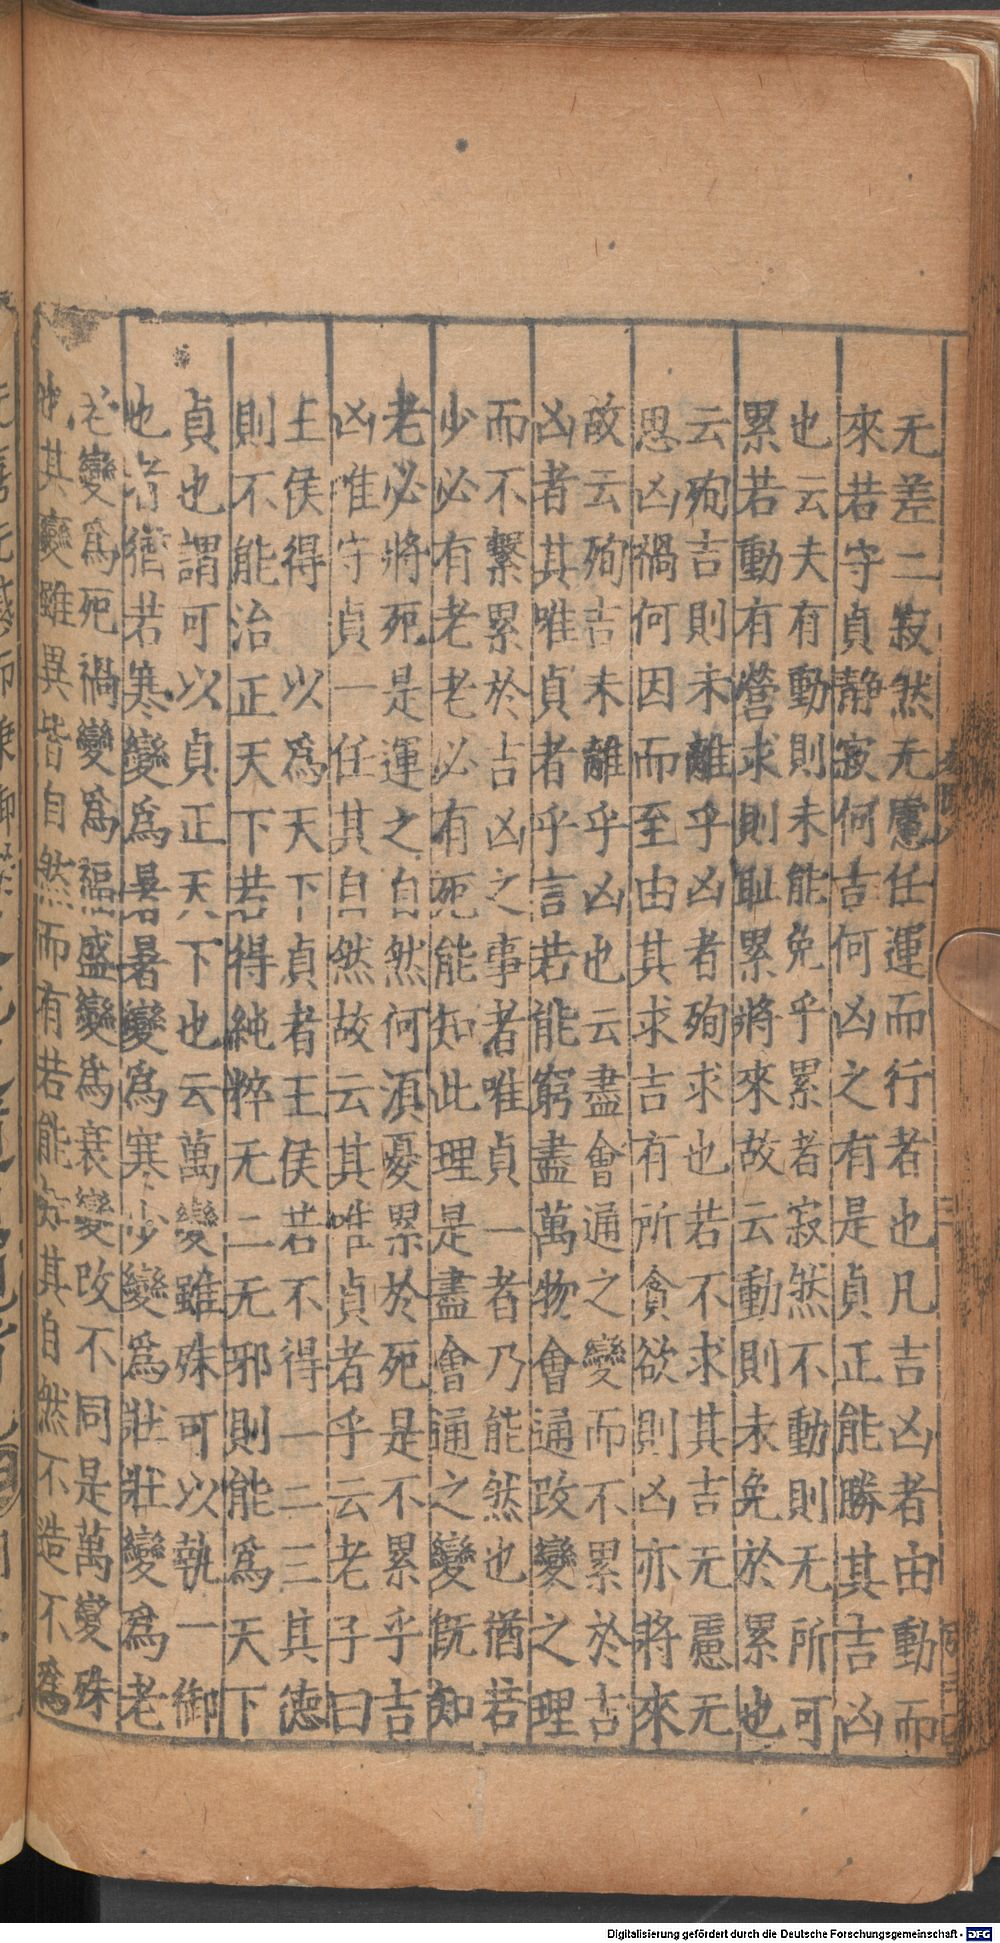 无差二寂然无慮任運而行者也凡吉凶者由動而
來若守貞靜寂何吉何凶之有是貞正能勝其吉凶
也云夫有動則未能免乎累者寂然不動則无所可
累若動有營求則耻累將來故云動則未免於累也
云殉吉則未離乎凶者殉求也若不求其吉无慮无
思凶禍何因而至由其求吉有所貪欲則凶亦將來
故云殉吉未離乎凶也云盡會通之變而不累於吉
凶者其唯貞者乎言若能窮盡萬物會通改變之理
而不繫累於吉凶之事者唯貞一者乃能然也猶若
少必有老老必有死能知此理是盡會通之變旣知
老必將死是運之自然何湏憂累於死是不累乎吉
凶唯守貞一任其自然故云其唯貞者乎云老子曰
王侯得一以為天下貞者王侯若不得一二三其德
則不能治正天下若得純粹无二无邪則能爲天下
貞也謂可以貞正天下也云萬變雖殊可以執一御
也者猶若寒變爲暑暑變爲寒少變爲壯壯變爲老
老變爲死禍變爲福盛變爲衰變改不同是萬變殊
也其變雖異皆自然而有若能知其自然不造不爲
Digitalisierung gefördert durch die Deutsche Forschungsgemeinschaft - DFG